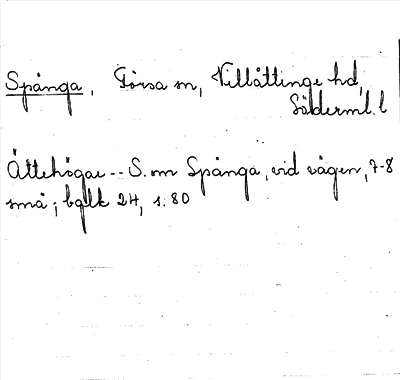 Spånga, Torsa sn, Villåttinge hd,
Söderml. l
Ättehögar -- S. om Spånga, vid vägen, 7-8
små; bglk 24, s. 80